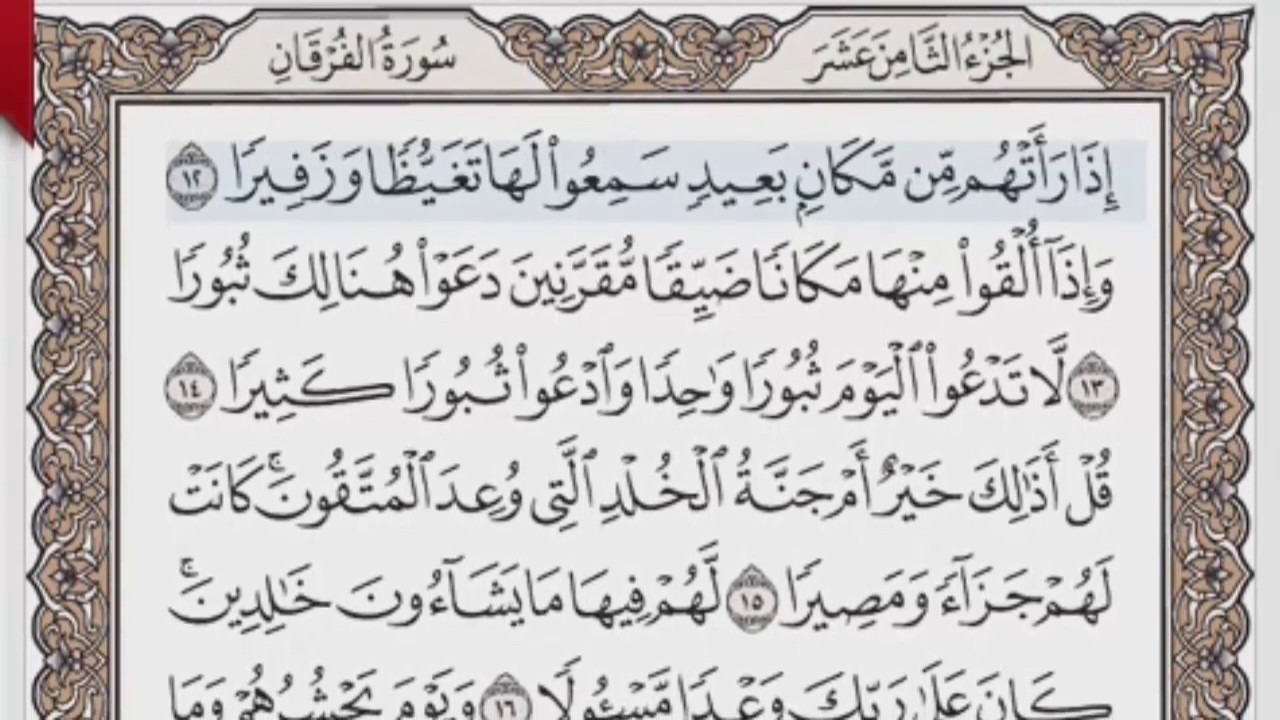 الجزء الثامن عشر
سورة الفرقان
إِذَا رَأَتْهُم مِّن مَّكَانِۭ بَعِيدٖ سَمِعُواْ لَهَا تَغَيُّظٗا وَزَفِيرٗا ١٢
وَإِذَآ أُلۡقُواْ مِنۡهَا مَكَانٗا ضَيِّقٗا مُّقَرَّنِينَ دَعَوۡاْ هُنَالِكَ ثُبُورٗا
١٣ لَّا تَدۡعُواْ ٱلۡيَوۡمَ ثُبُورٗا وَٰحِدٗا وَٱدۡعُواْ ثُبُورٗا كَثِيرٗا ١٤
قُلۡ أَذَٰلِكَ خَيۡرٌ أَمۡ جَنَّةُ ٱلۡخُلۡدِ ٱلَّتِي وُعِدَ ٱلۡمُتَّقُونَۚ كَانَتۡ
لَهُمۡ جَزَآءٗ وَمَصِيرٗا ١٥ لَّهُمۡ فِيهَا مَا يَشَآءُونَ خَٰلِدِينَۚ
كَانَ عَلَىٰ رَبِّكَ وَعۡدٗا مَّسۡـُٔولٗا ١٦ وَيَوۡمَ يَحۡشُرُهُمۡ وَمَا